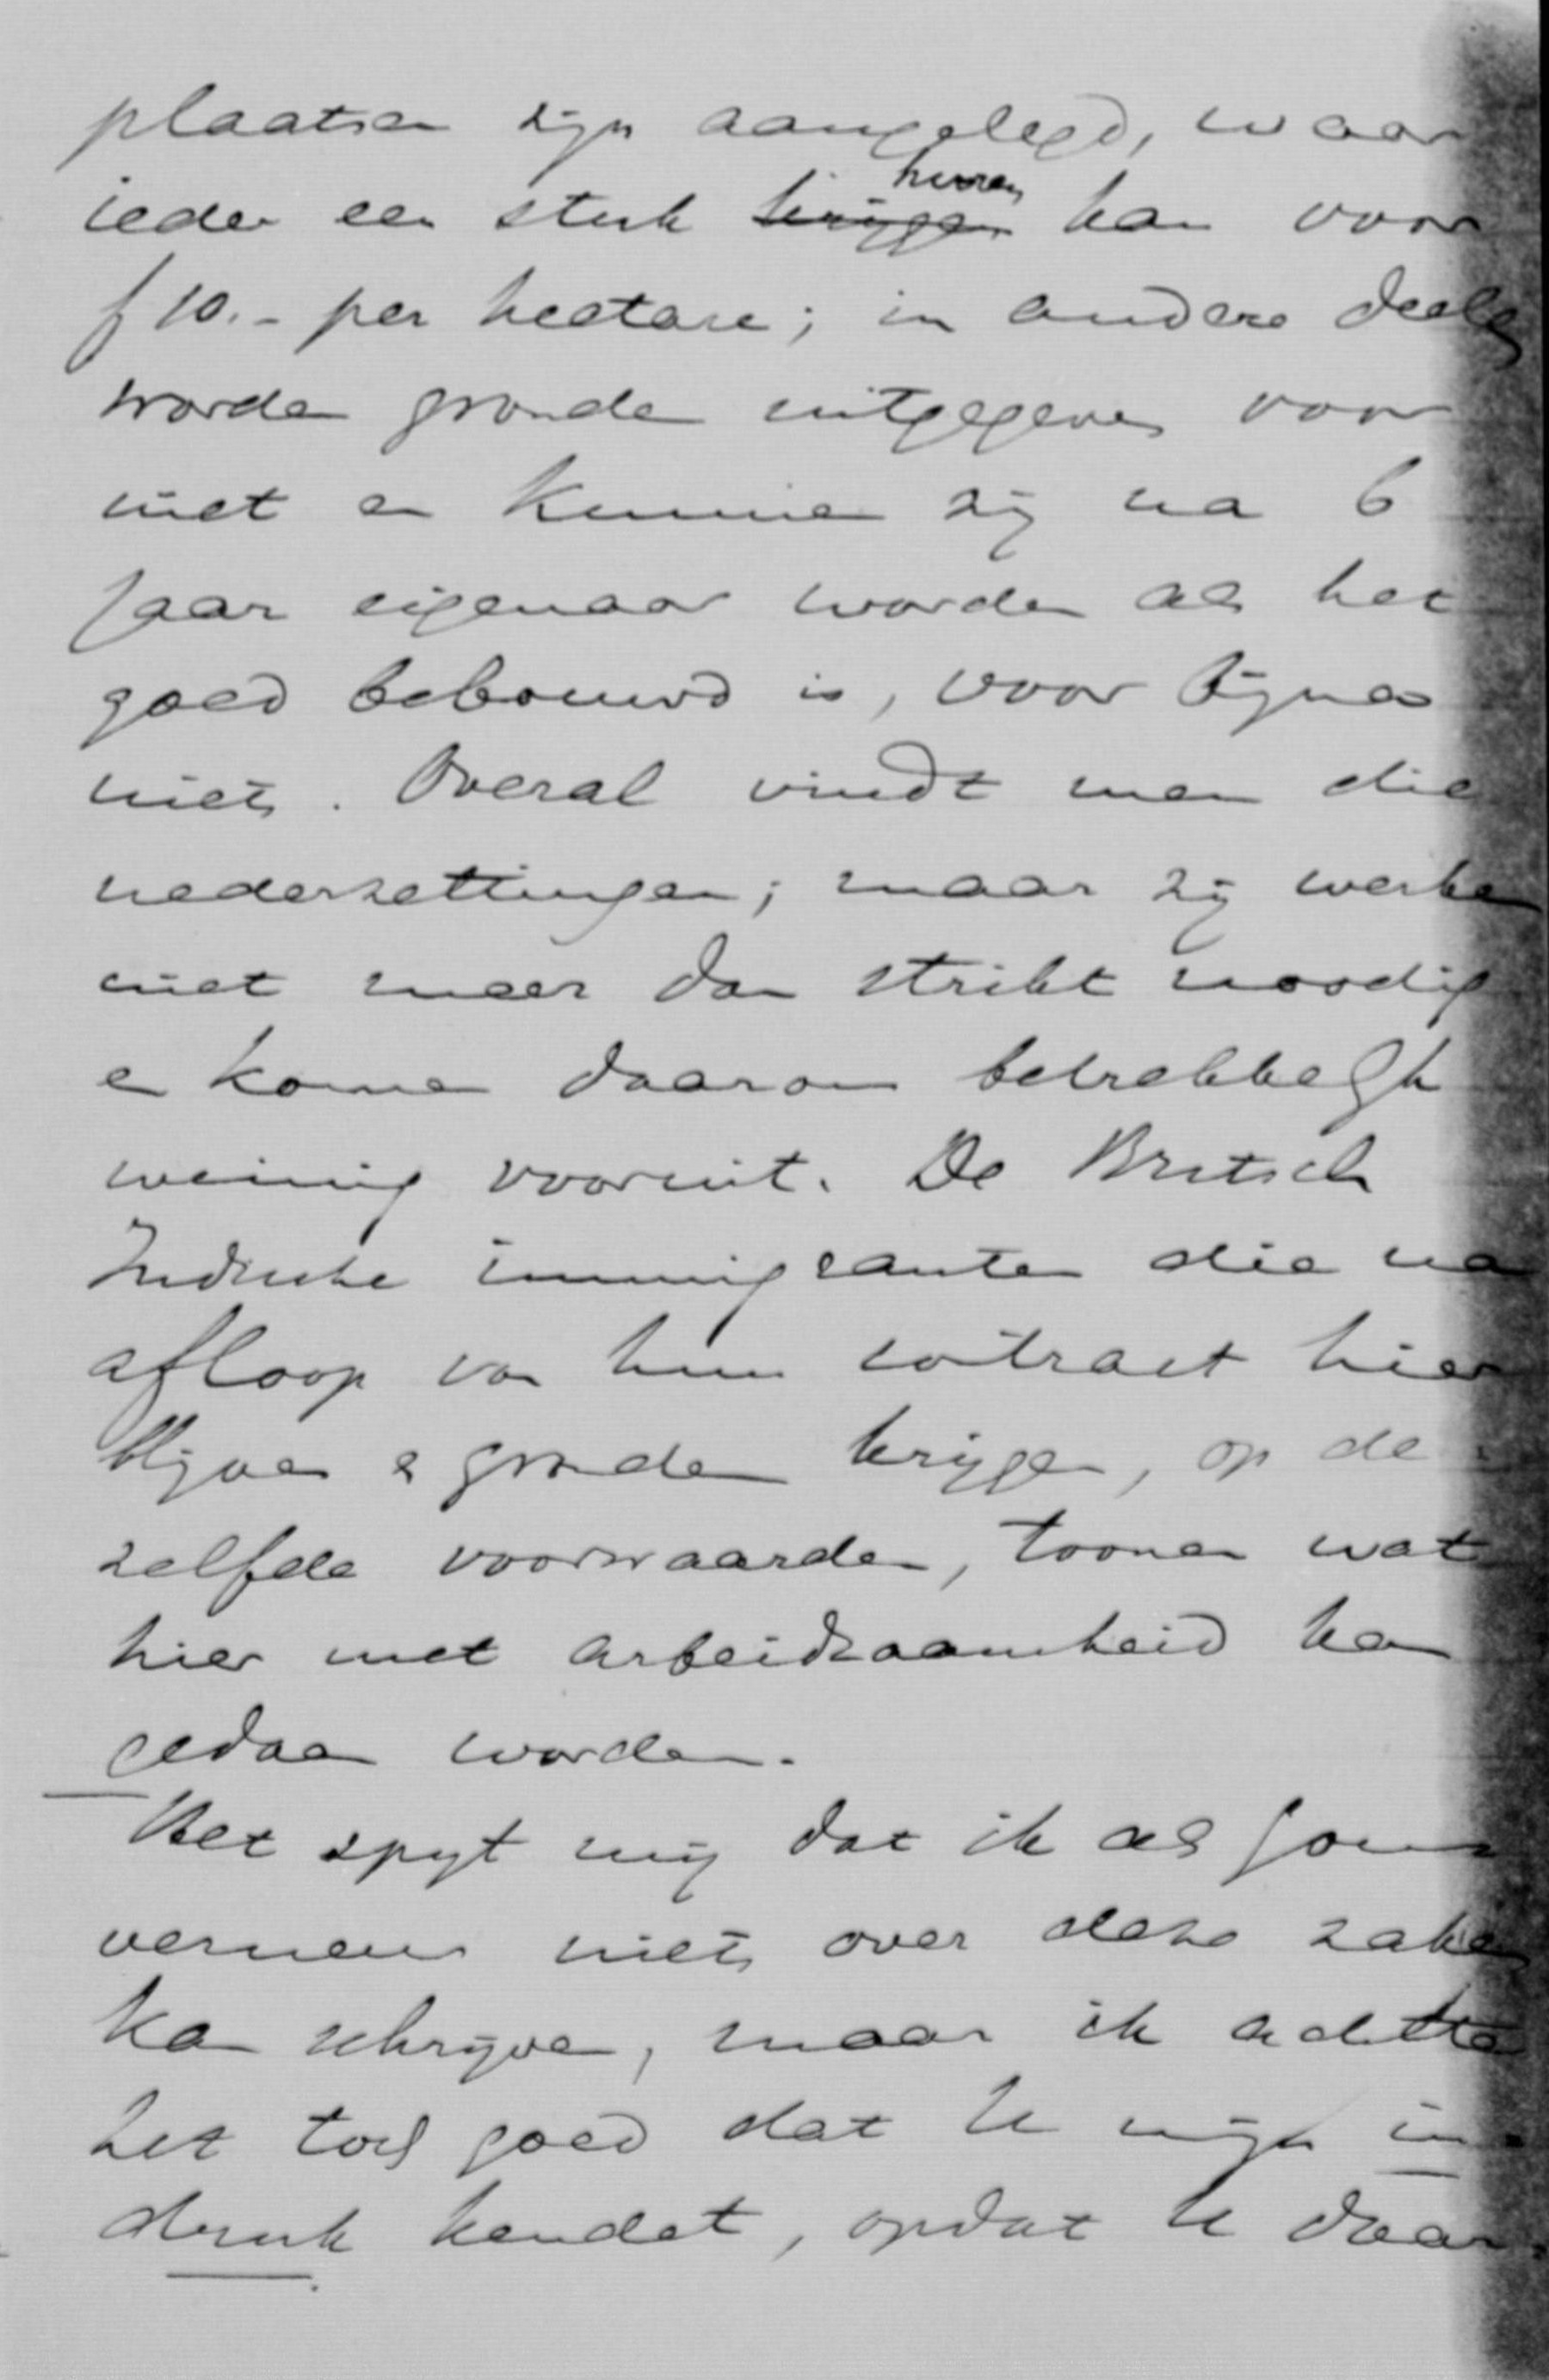 plaatsen zijn aangelegd, waar
ieder een stuk krijgen huren kan voor
f 10.- per hectare; in andere deelen
worden gronden uitgegeven voor
niet en kunnen zij na 6
jaar eigenaar worden als het
goed bebouwd is, voor bijna
niets. Overal vindt men die
nederzettingen; maar zij werken
niet meer dan strikt noodig
en komen daarom betrekkelijk
weinig vooruit. De Britsch
Indische immigranten die na
afloop van hun contract hier
blijven & gronden krijgen, op de
zelfde voorwaarden, toonen wat
hier met arbeidzaamheid kan
gedaan worden.
Het spijt mij dat ik als Gou
verneur niets over deze zaken
kan schrijven, maar ik achtte
het toch goed dat U mijn in
druk kendet, opdat U daar